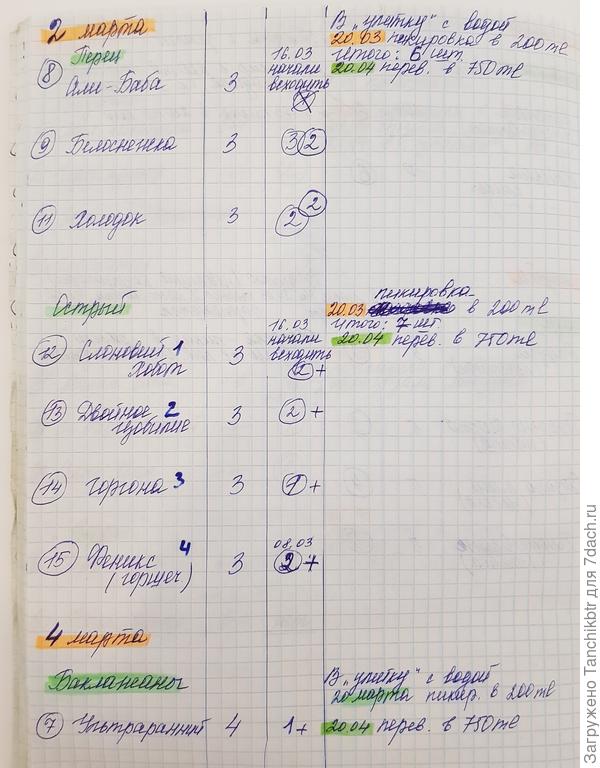 2 марта
В "улитку" с водой
20.03 пикировка в 200 мл
Итого: 6 шт.
20.04 перев. в 750 мл
Перец
8 Али-Баба 3
16.03
начали
всходить
9 Белоснежка 3 3 2
11 Холодок 3 2 2
Острый
пикировка
20.03 в 200 мл
Итого: 7 шт
20.04 перев. в 750 мл
16.03
начали
всходить
12 Слоновий 1 3
хобот 2+
13 Двойное 2 3 2+
изобилие
14 Горгона 3 3 1+
08.03
15 Феникс 4 3 2+
(горшеч)
4 марта
Баклажаны
В "улитку" с водой
20 марта пикир. в 200 мл
7 Ультраранний 4 1+ 20.04 перев. в 750 мл
Загружено Tanchikbtr для 7dach.ru